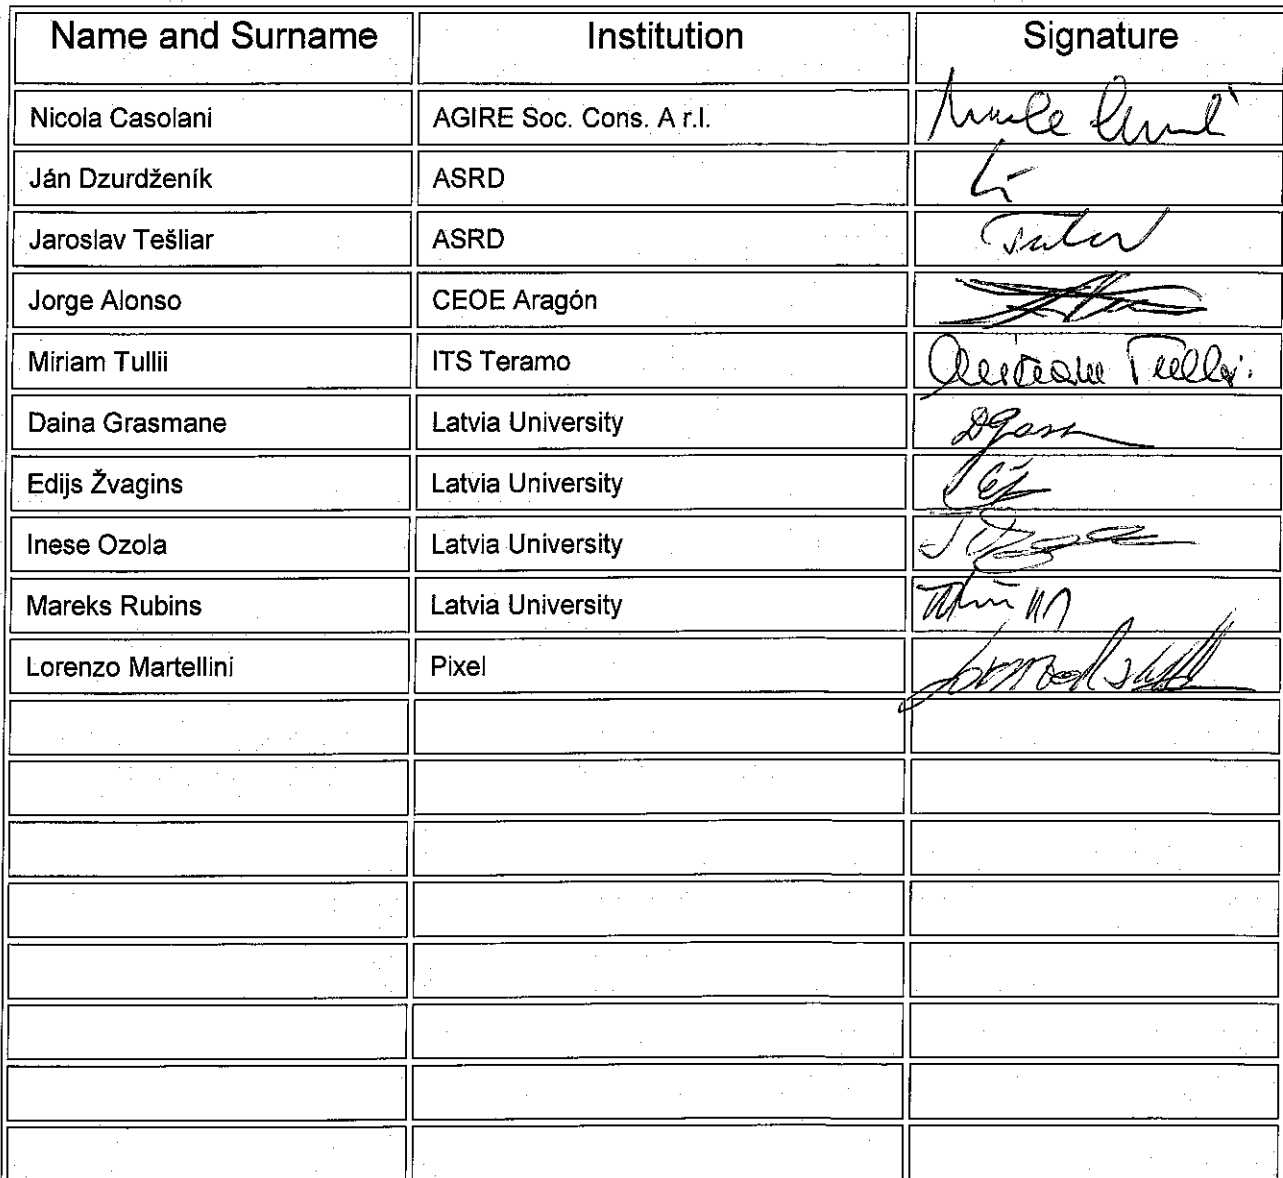 Name and Surname Institution Signature
Nicola Casolani AGIRE Soc. Cons. A r.l.
Ján Dzurdženík ASRD
Jaroslav Tešliar ASRD
Jorge Alonso CEOE Aragón
Miriam Tullii ITS Teramo
Daina Grasmane Latvia University
Edijs Žvagins Latvia University
Inese Ozola Latvia University
Mareks Rubins Latvia University
Lorenzo Martellini Pixel